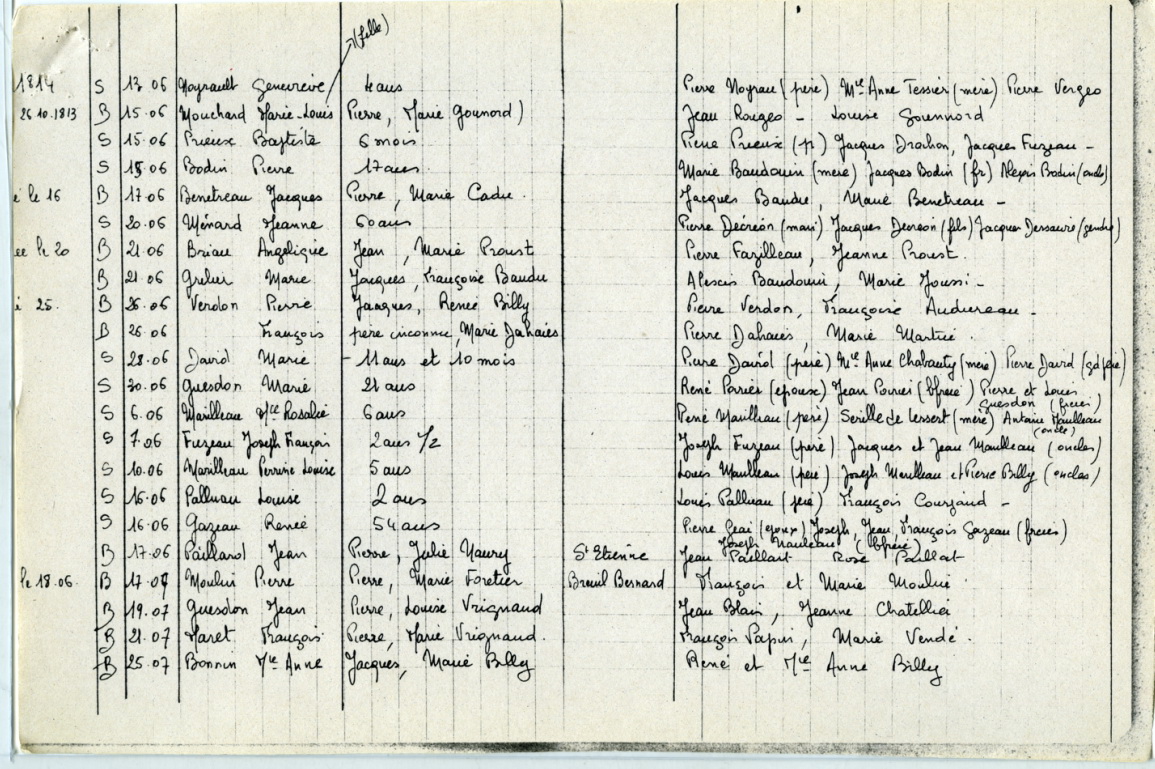 (fille)
1814 S 13.06 Noyrault Geneviève 4 ans Pierre Noyrau (père) Mie Anne Tessier (mère) Pierre Verges
26.10.1813 B 15.06 Mouchard Marie-Louis Pierre, Marie Gounord) Jean Rouges - Louise Gounnord
S 15.06 Prieux Baptiste 6 mois Pierre Prieux (p) Jacques Drochon, Jacques Fuzeau -
S 15.06 Bodin Pierre 17 ans Marie Baudouin (mère) Jacques Bodin (fr) Alexis Bodin (oncle)
é le 16 B 17.06 Benetreau Jacques Pierre, Marie Cadu. Jacques Baudu, Marie Benetreau -
S 20.06 Ménard Jeanne 60 ans Pierre Décréon (mari) Jacques Decreon (fils) Jacques Dessaure (gendre)
ée le 20 B 21.06 Briau Angélique Jean, Marie Proust Pierre Fazilleau, Jeanne Proust.
B 21.06 Grelier Marie Jacques, Françoise Baudu Alexis Baudouin, Marie Joussi -
é 25. B 26.06 Verdon Pierre Jacques, Renée Billy Pierre Verdon, Françoise Audureau -
B 26.06 François père inconnu, Marie Dahaies Pierre Dahaies, Marie Martin.
S 28.06 David Marie - 11 ans et 10 mois Pierre David (père) Mie Anne Chabauty (mère) Pierre David (gd père)
S 30.06 Guesdon Marie 21 ans René Poirier (epoux) Jean Poirier (bfrère) Pierre et Louis
Guesdon (frères)
S 6.06 Marilleau Mce Rosalie 6 ans René Maulleau (père) Serille de Lessert (mère) Antoine Maulleau
(oncle)
S 7.06 Fuzeau Joseph François 2 ans 1/2 Joseph Fuzeau (père), Jacques et Jean Maulleau (oncles)
S 10.06 Marilleau Perrine Louise 5 ans Louis Maulleau (père) Joseph Maulleau et Pierre Billy (oncles)
S 16.06 Palluau Louise 2 ans Louis Palluau (père) François Courjaud -
S 16.06 Gazeau Renée 54 ans Pierre Geai (epoux) Joseph, Jean, François Gazeau (freres)
Joseph Mauleau bfrère
B 17.06 Paillard Jean Pierre, Julie Naury St Etienne Jean Paillart Rose Paillat
le 18.06. B 17.07 Moulin Pierre Pierre, Marie Foretier Breuil Bernard François et Marie Moulin.
B 19.07 Guesdon Jean Pierre, Louise Vrignaud Jean Blais, Jeanne Chatellié
B 21.07 Maret François Pierre, Marie Vrignaud. François Papin, Marie Vendé.
B 25.07 Bonnin Mie Anne Jacques, Marie Billy René et Mie Anne Billy